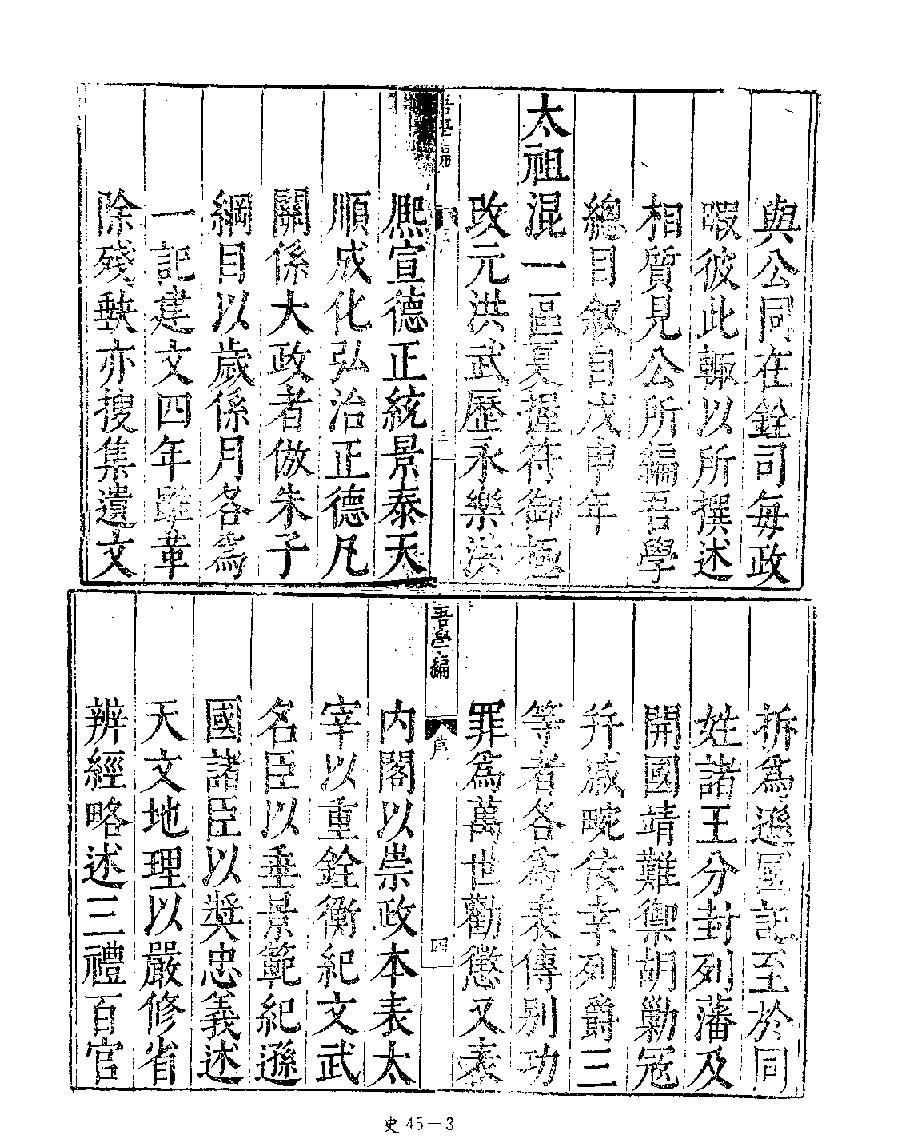 與公同在銓司每政
暇彼此輙以所撰述
相質見公所編吾學
總目叙自戊申年
太祖混一區夏握符御極
改元洪武歷永樂洪
吾學編
三
熈宣德正統景泰天
順成化弘治正德凡
關係大政者倣朱子
綱目以歲係月各爲
一記建文四年雖革
除殘缺亦搜集遺文
拆爲遜國記至於同
姓諸王分封列藩及
開國靖難禦胡勦冦
并戚畹佞幸列爵三
等者各爲表傳别功
罪爲萬世勸懲又表
吾學編
序
四
内閣以崇政本表太
宰以重銓衡紀文武
名臣以垂景範紀遜
國諸臣以奬忠義述
天文地理以嚴修省
辨經略述三禮百官
史 45－3